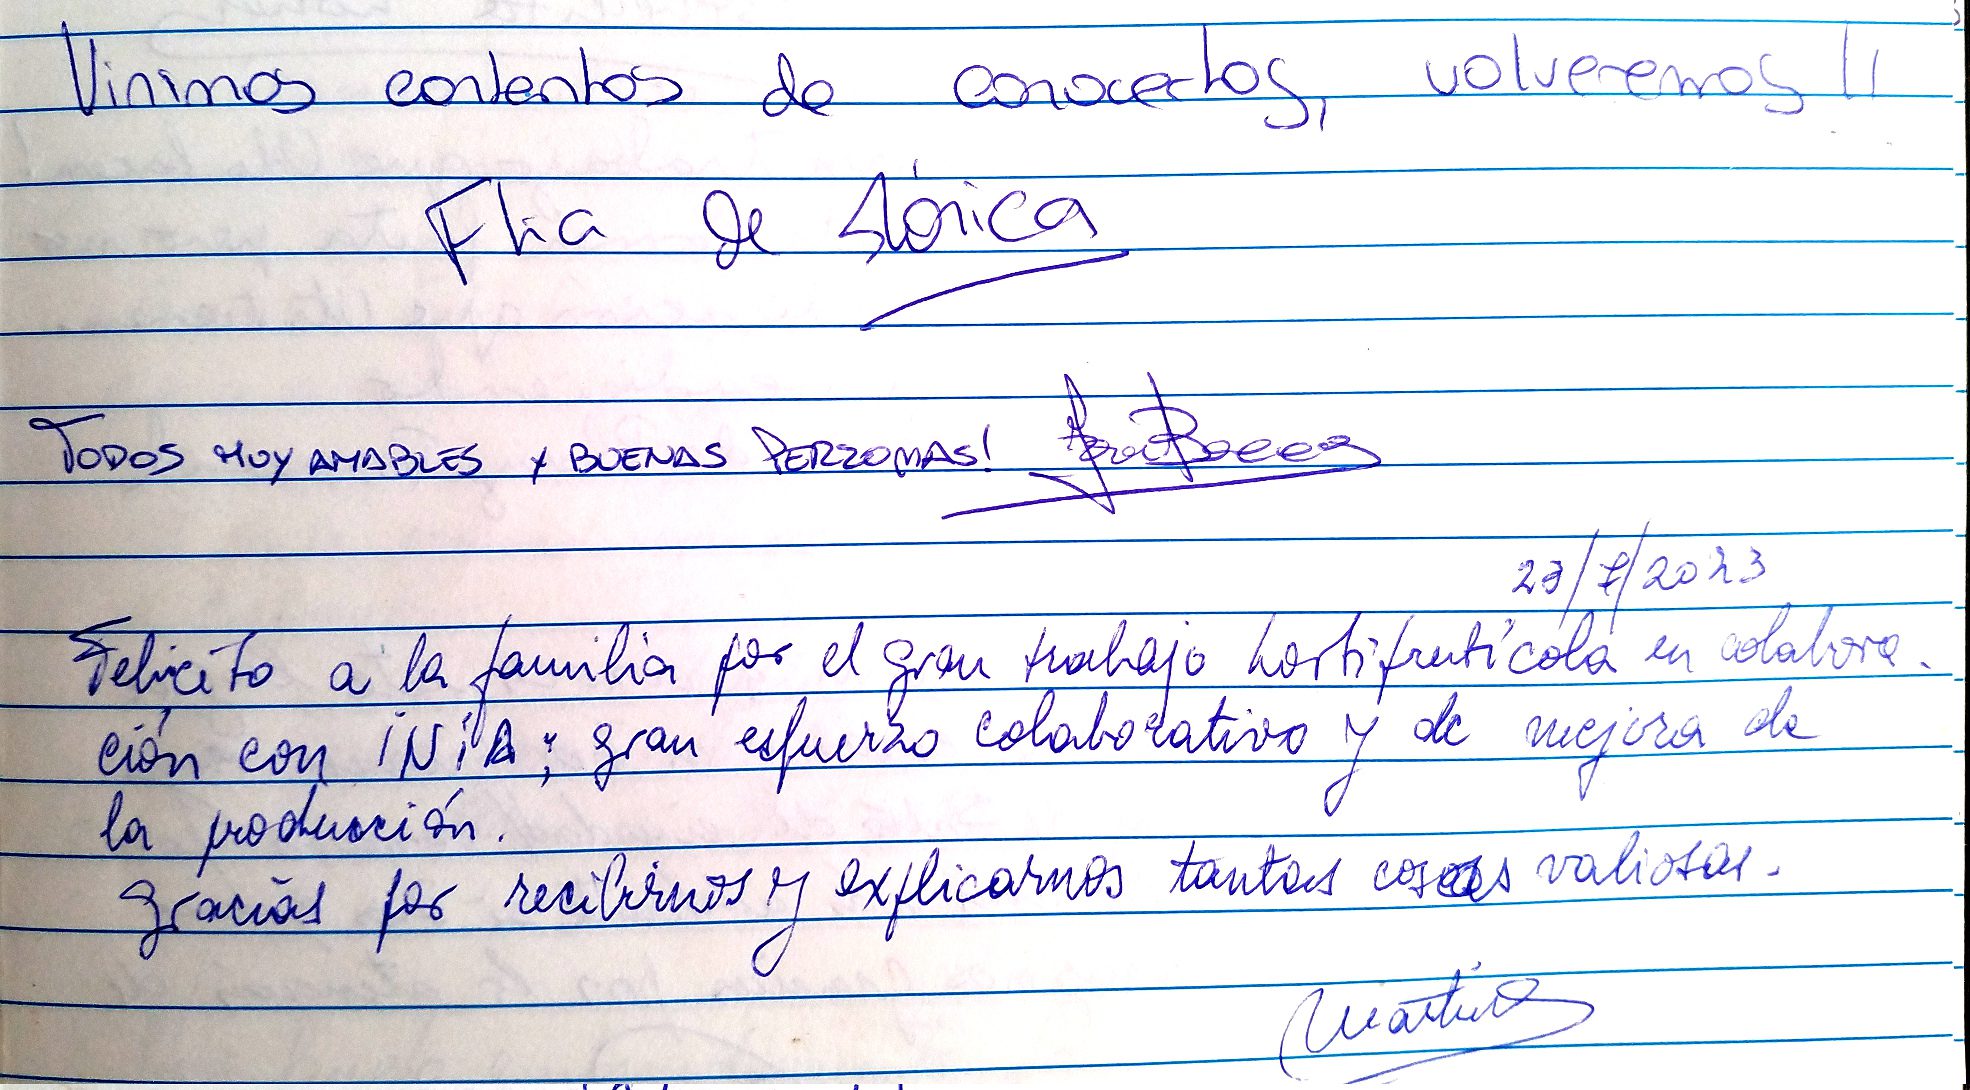 Vinimos contentos de conocerlos, volveremos!!
Flia de Mónica
TODOS MUY AMABLES Y BUENAS PERZONAS!
23/7/2023
Felicito a la familia por el gran trabajo hortifrutícola en colabora-
ción con INIA; gran esfuerzo colaborativo y de mejora de
la producción.
Gracias por recibirnos y explicarnos tantas cosas valiosas.